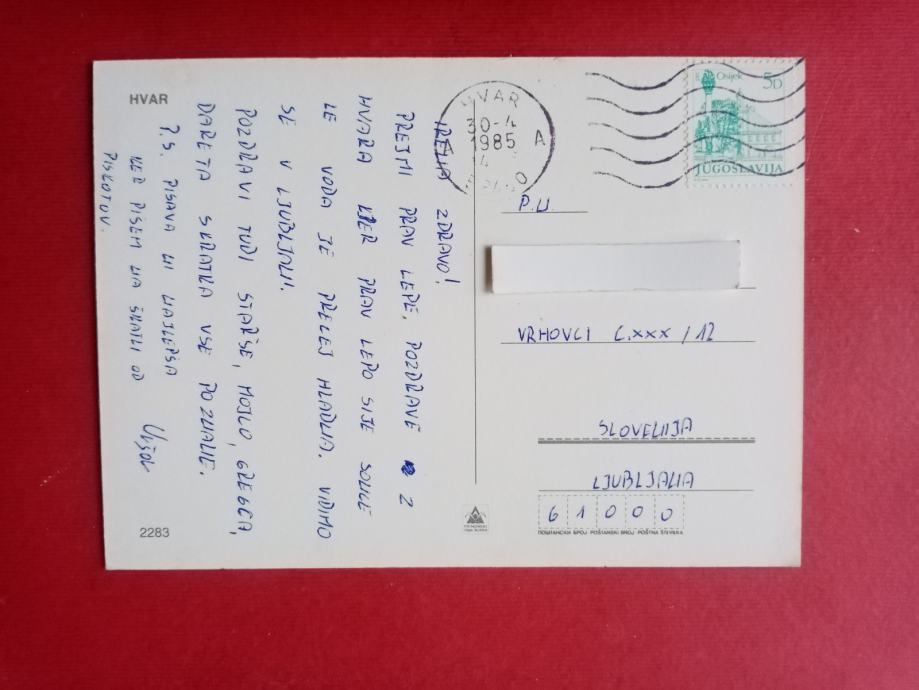 HVAR
IRENA ZDRAVO!
PREJMI PRAV LEPE, POZDRAVE Z
HVARA KJER PRAV LEPO SIJE SONCE
LE VODA JE PRECEJ HLADNA. VIDIMO
SE V LJUBLJANI.
POZDRAVI TUDI STARŠE, MOJCO, GREGCA,
DARETA SKRATKA VSE POZNANE.
P.S. PISAVA NI NAJLEPŠA
KER PIŠEM NA ŠKATLI OD
PIŠKOTOV.
2283
HVAR
30-4
1985
A A
Osijek 5D
JUGOSLAVIJA
P.N.
VRHOVCI C.XXX / 12
SLOVENIJA
LJUBLJANA
61000
ПОШТАНСКИ БРОЈ POŠTANSKI BROJ POŠTNA ŠTEVILKA